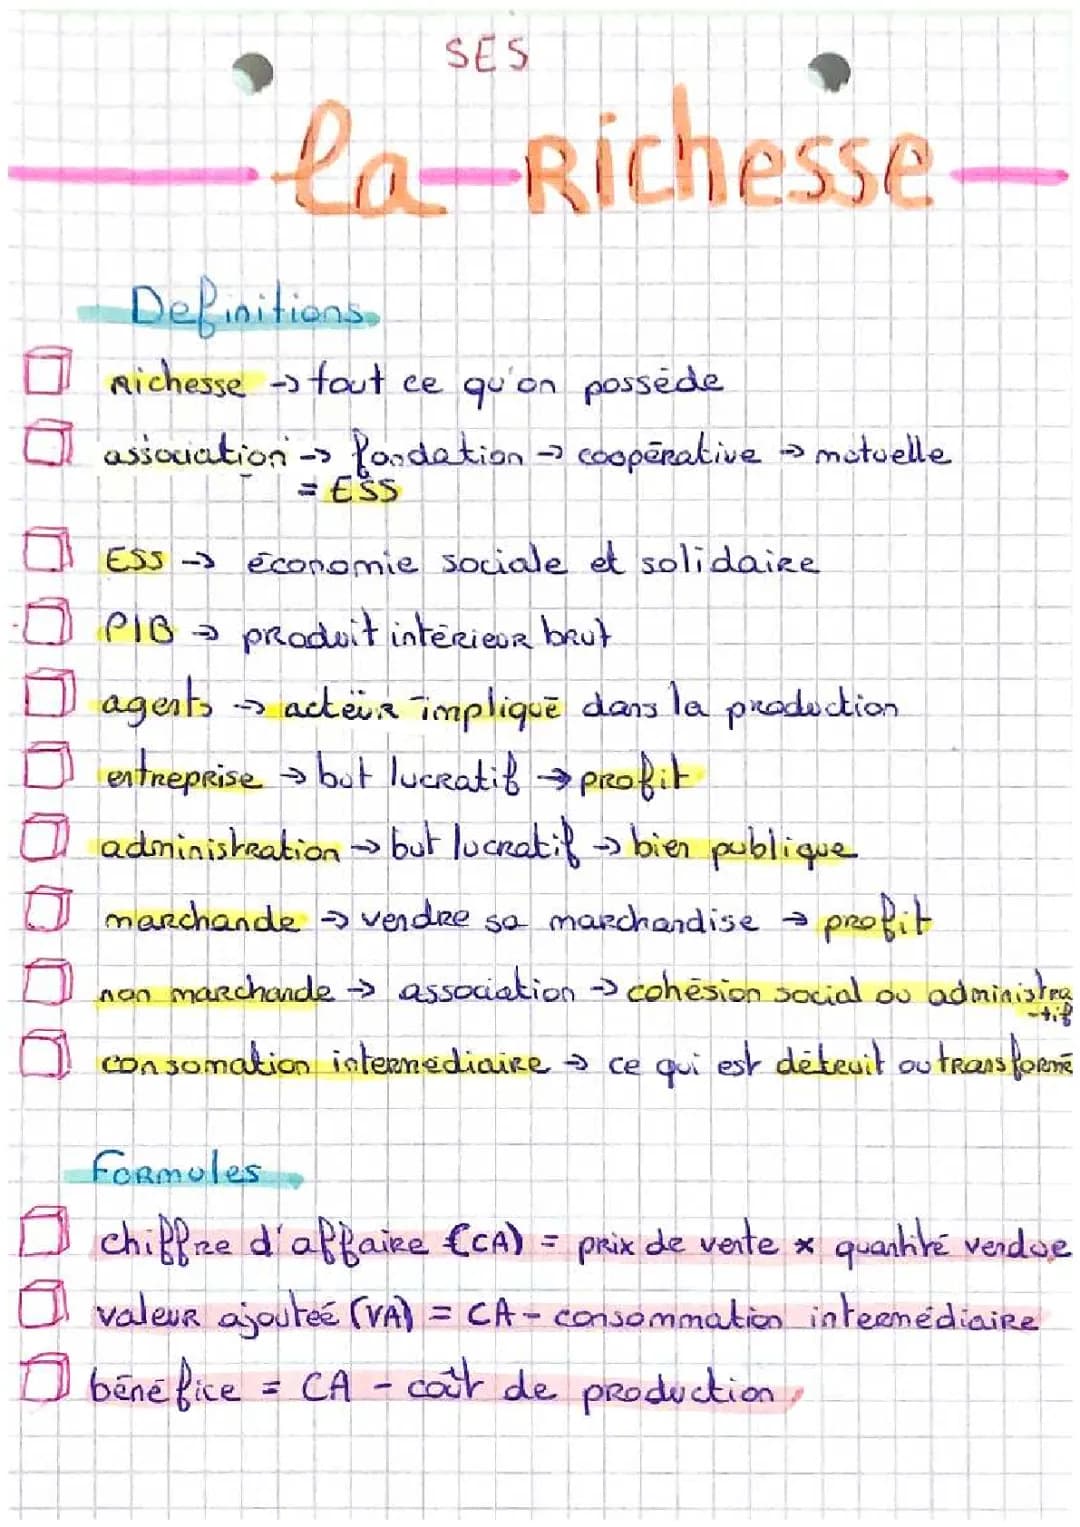 SES
la Richesse
Definitions
Richesse → tout ce qu'on possède
association → fondation → coopérative → mutuelle
= ESS
ESS → économie sociale et solidaire
PIB → produit intérieur brut
agents → acteur impliqué dans la production
entreprise → but lucratif → profit
administration → but lucratif → bien publique
marchande → vendre sa marchandise → profit
non marchande → association → cohésion social ou administra
-tif
consomation intermediaire → ce qui est détruit ou transformé
Formules
chiffre d'affaire (CA) = prix de vente × quantité vendue
valeur ajouteé (VA) = CA - consommation intermédiaire
bénéfice = CA - coût de production